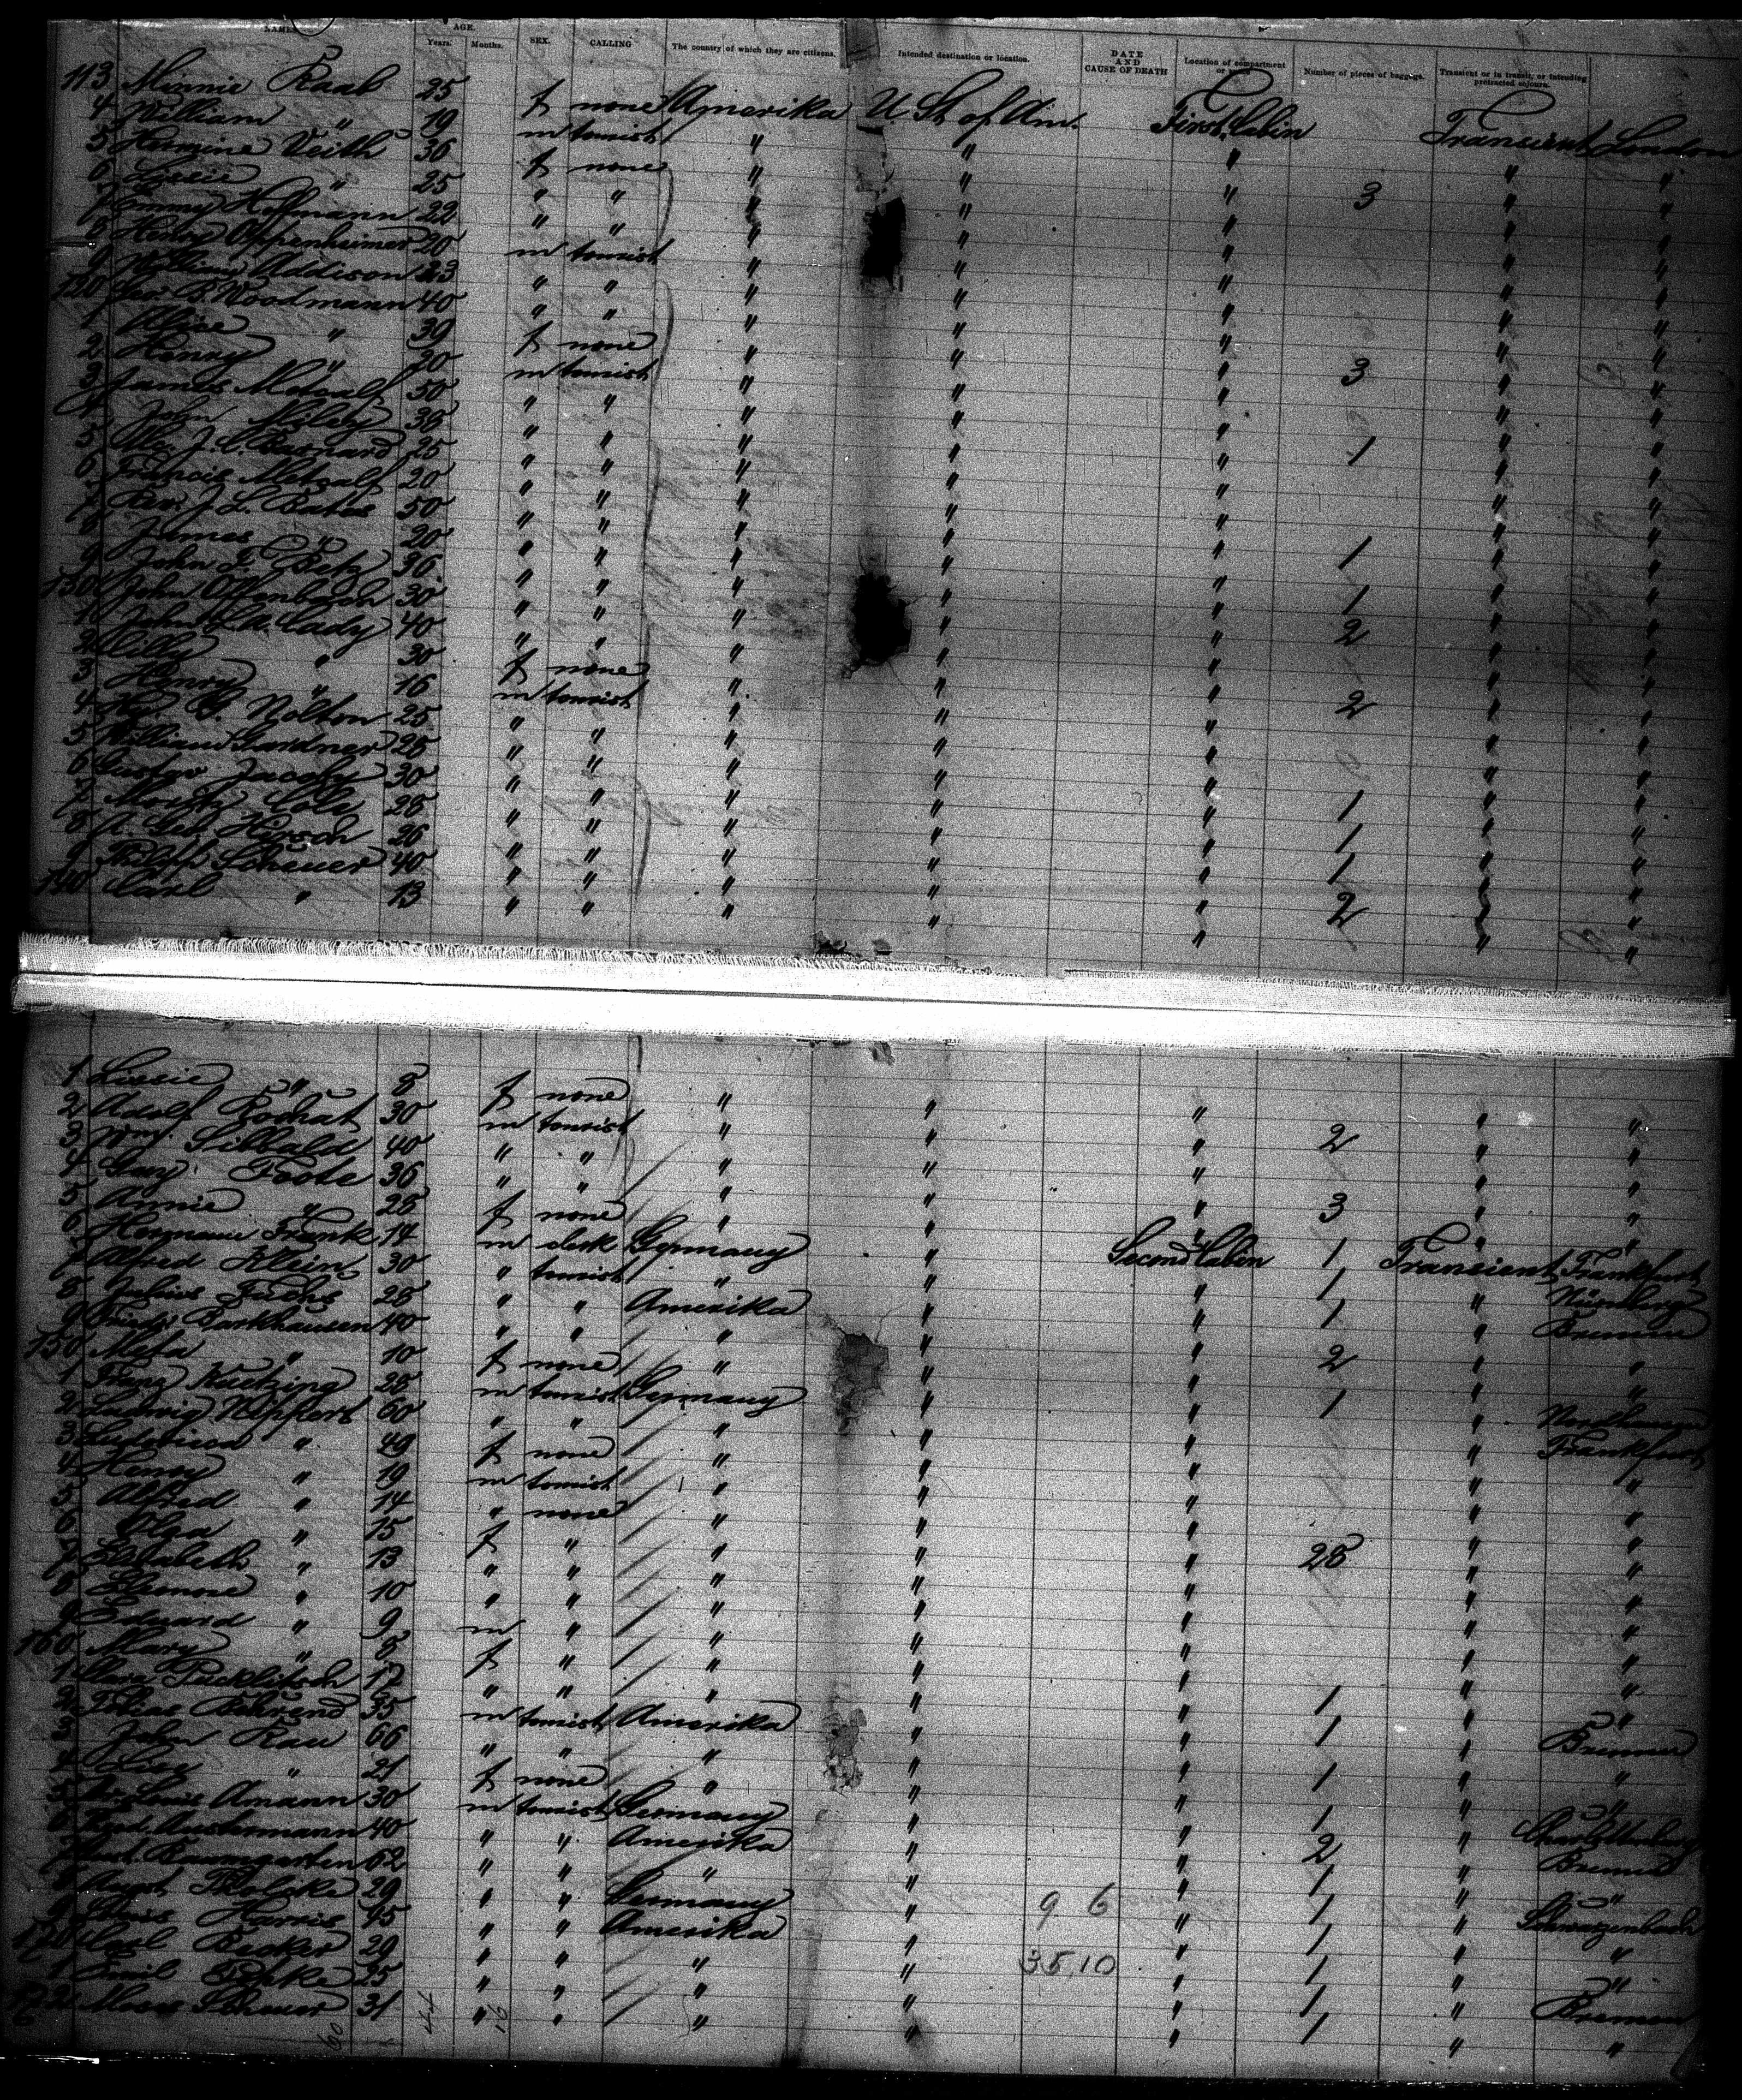 NAMES AGE. Years. Months. SEX. CALLING The country of which they are citizens. Intended destination or location. DATE AND CAUSE OF DEATH Location of compartment or space. Number of pieces of baggage. Transient or in transit, or intending protracted sojourn.
113 Minnie Raab 25 f none Amerika U St of Am. First Cabin Transient London
4 William " 19 m tourist " " " " "
5 Hermine Veith 36 f none " " " 3 " "
6 Lissie " 25 " " " " " " "
7 Emmy Hofmann 22 " " " " " " "
8 Henry Oppenheimer 20 m tourist " " " " "
9 William Addison 23 " " " " " " "
120 Geo. B. Woodmann 40 " " " " " " "
1 Alice " 39 f none " " " " "
2 Henry " 20 m tourist " " " 3 " "
3 James Metcalf 50 " " " " " " "
4 John Miley 38 " " " " " " "
5 J. C. Barnard 25 " " " " " 1 " "
6 Francis Metcalf 20 " " " " " " "
7 Rev. J. L. Bates 50 " " " " " " "
8 James " 20 " " " " " 1 " "
9 John F. Betz 36 " " " " " 1 " "
130 John Offenbach 30 " " " " " 2 " "
1 John Cady 40 " " " " " " "
2 Lilly " 30 f none " " " " "
3 Henry " 16 m tourist " " " 2 " "
4 G. Nolton 25 " " " " " " "
5 William Gardner 28 " " " " " " "
6 Gustav Jacoby 30 " " " " " 1 " "
7 Moritz Cole 28 " " " " " 1 " "
8 A. Geo. Hirsch 26 " " " " " 1 " "
9 Philipp Scheuer 40 " " " " " 2 " "
140 Carl " 13 " " " " " " "
1 Lissie " 8 f none " " " " "
2 Adolf Rochat 30 m tourist " " " 2 " "
3 Wm. Sibbald 40 " " " " " " "
4 Guy Foote 36 " " " " " 3 " "
5 Annie " 28 f none " " " " "
6 Hermann Frank 14 m clerk Germany " Second Cabin 1 Transient Frankfurt
7 Alfred Klein 30 " tourist " " " 1 " Nürnberg
8 Julius Fuchs 28 " " Amerika " " 1 " Bremen
9 Friedr. Barkhausen 40 " " " " " 2 " "
150 Meta " 10 f none " " " " "
1 Franz Kützing 28 m tourist Germany " " 1 " Nordhausen
2 Ludwig Nipfert 60 " " " " " " Frankfurt
3 " 49 f none " " " " "
4 Henry " 19 m tourist " " " " "
5 Alfred " 14 " none " " " " "
6 Olga " 15 f " " " " 28 " "
7 Elisabeth " 13 " " " " " " "
8 Eleonore " 10 " " " " " " "
9 Eduard " 9 m " " " " " "
160 Mary " 8 f " " " " " "
1 17 " " " " " 1 " "
2 Tobias Behrend 35 m tourist Amerika " " 1 " Bremen
3 John Rau 66 " " " " " 1 " "
4 Lisa " 21 f none " " " " "
5 Louis Amann 30 m tourist Germany " " 1 " Charlottenburg
6 Austermann 40 " " Amerika " " 2 " Bremen
7 Baumgarten 62 " " " " " 1 " "
8 August 29 " " Germany " 9 6 " 1 " Schwarzenbach
9 Harris 45 " " Amerika " " 1 " "
170 Carl Becker 29 " " " " 35 10 " 1 " "
1 Emil 25 " " " " " 1 " Bremen
172 Moses Scheuer 31 " " " " " 1 " "
60 44 16